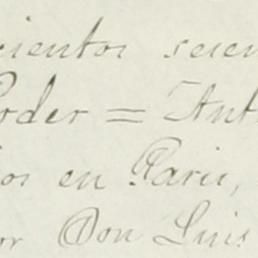 cientos sesen
Poder = Ant
os en Paris,
or Don Luis